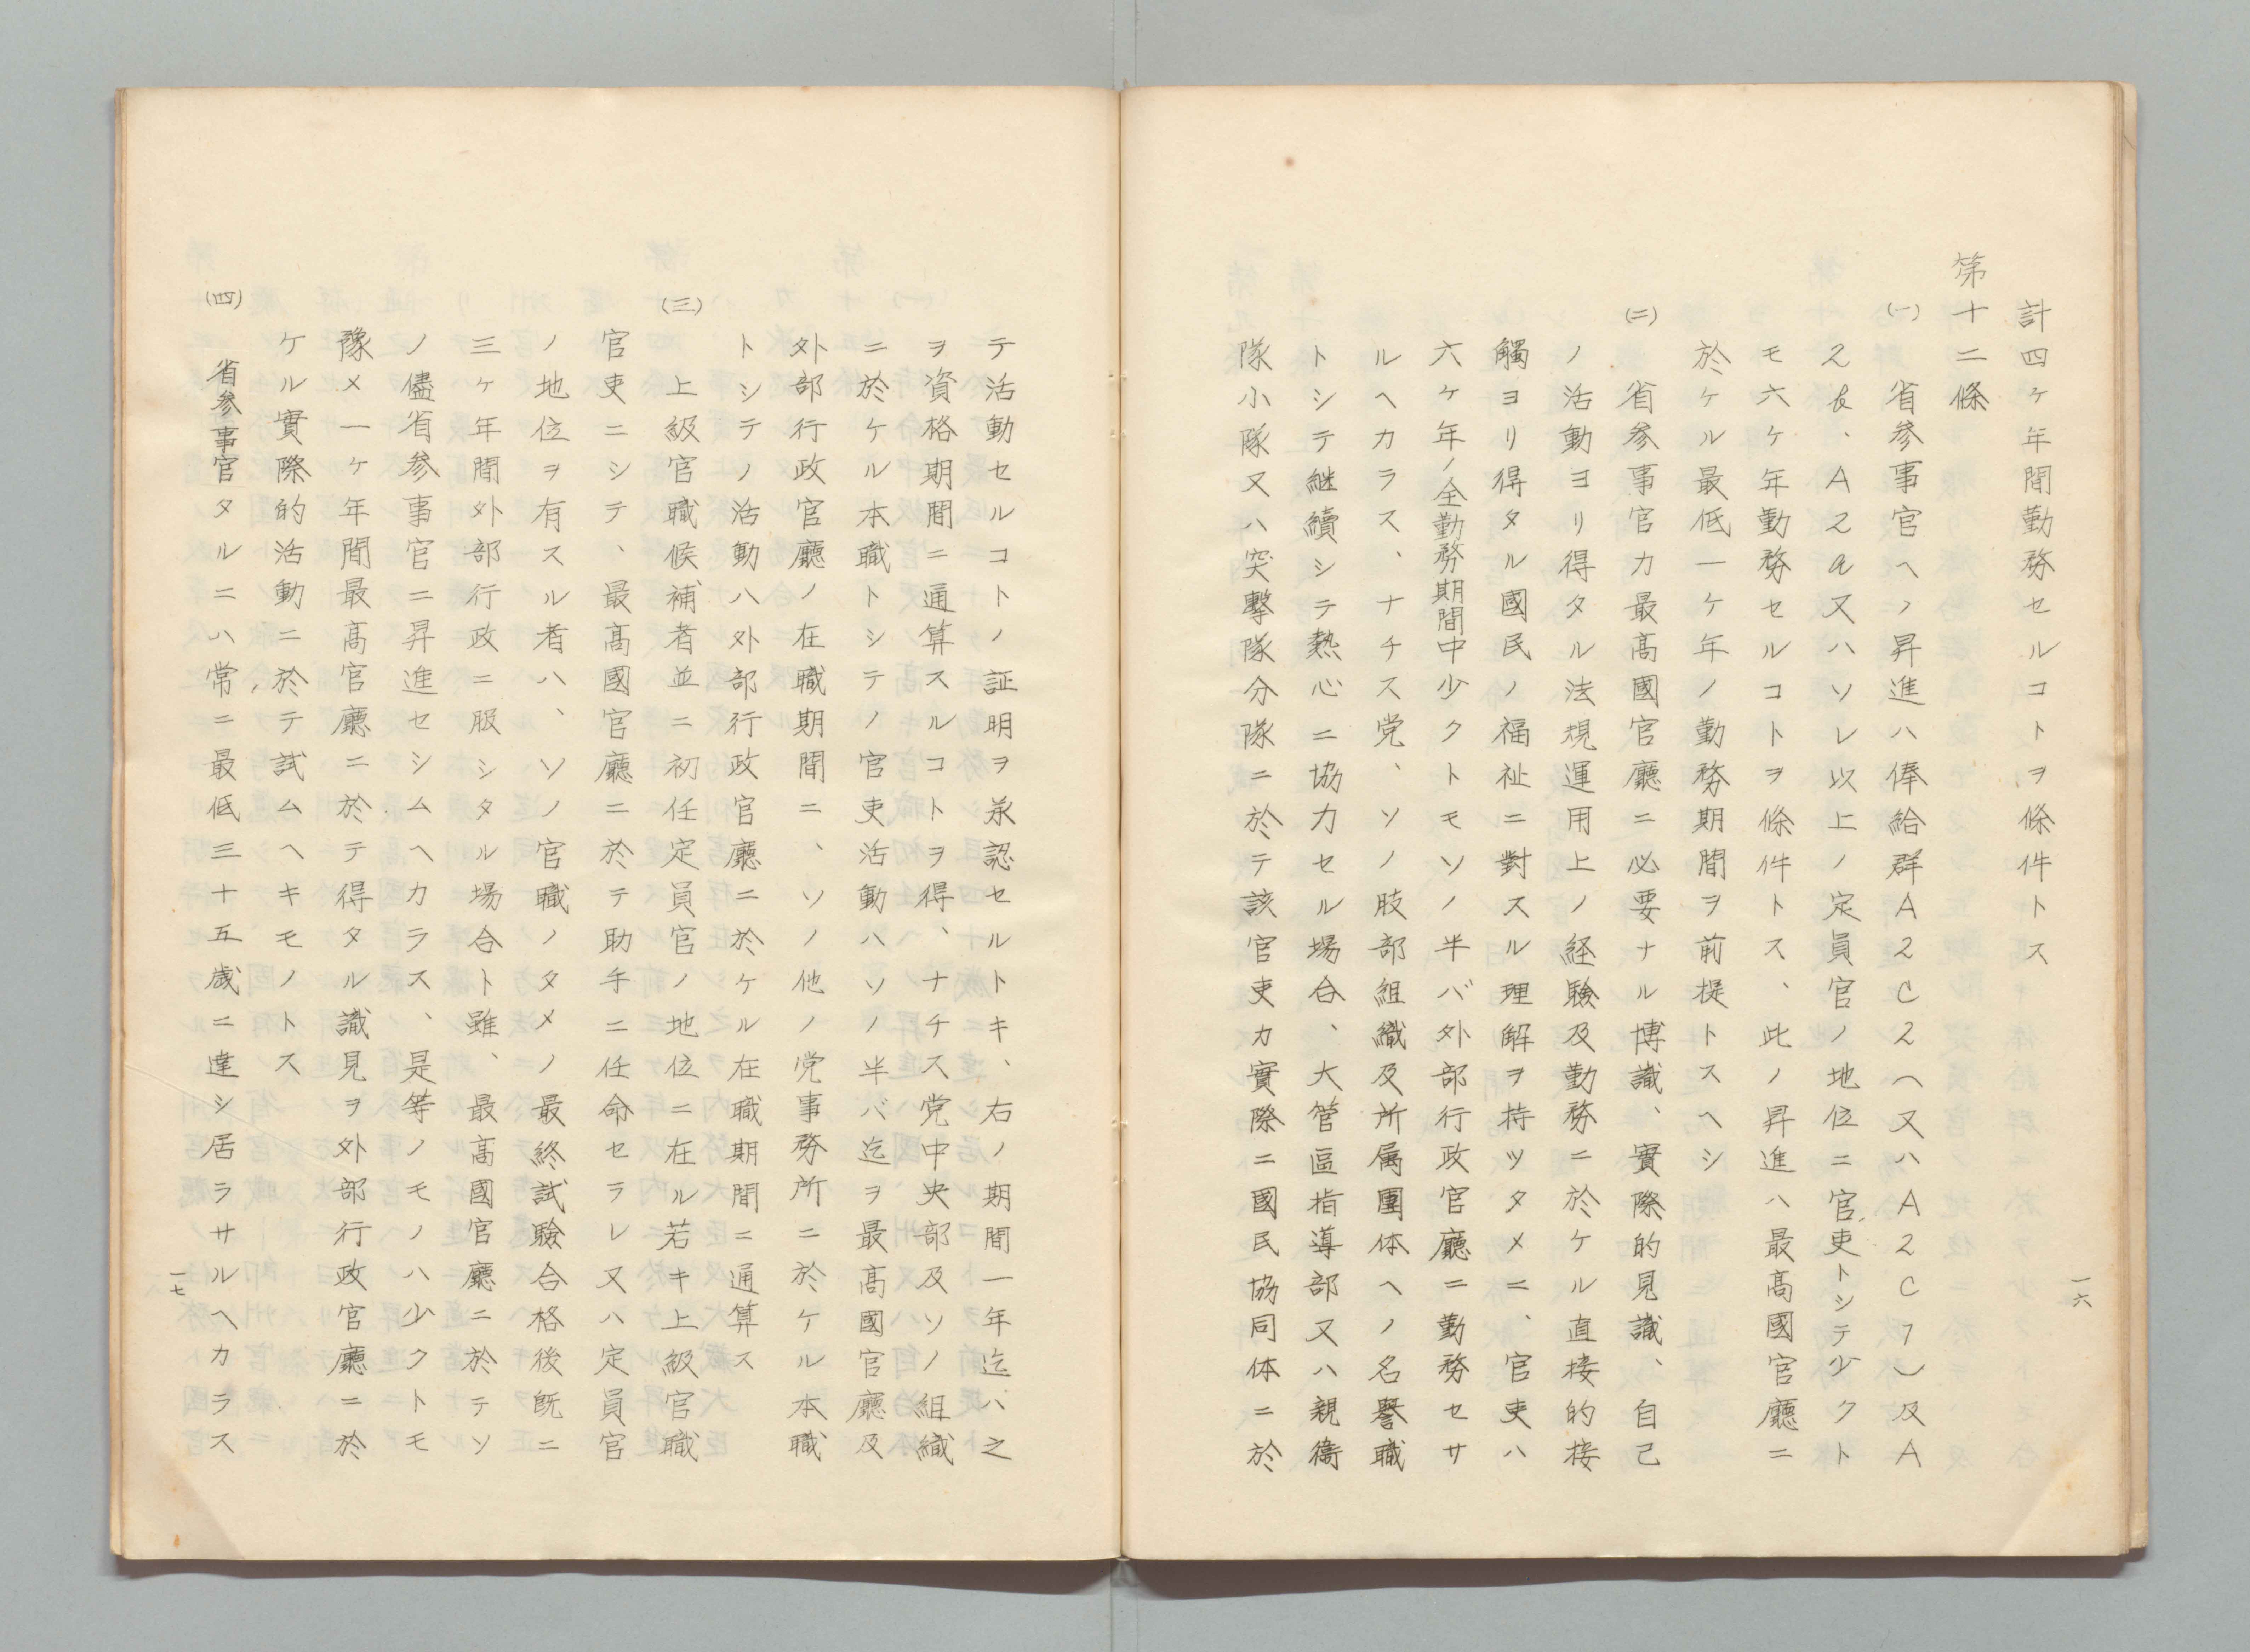 計四ケ年間勤務セルコトヲ條件トス
第十二條
(一) 省参事官ヘノ昇進ハ俸給群A2C2(又ハA2C1)及A
2b、A2a又ハソレ以上ノ定員官ノ地位ニ官吏トシテ少クト
モ六ケ年勤務セルコトヲ條件トス、此ノ昇進ハ最高國官廳ニ
於ケル最低一ケ年ノ勤務期間ヲ前提トスヘシ
(二) 省参事官カ最高國官廳ニ必要ナル博識、實際的見識、自己
ノ活動ヨリ得タル法規運用上ノ経驗及勤務ニ於ケル直接的接
觸ヨリ得タル國民ノ福祉ニ對スル理解ヲ持ツタメニ、官吏ハ
六ケ年ノ全勤務期間中少クトモソノ半バ外部行政官廳ニ勤務セサ
ルヘカラス、ナチス党、ソノ肢部組織及所属團体ヘノ名譽職
トシテ継續シテ熱心ニ協力セル場合、大管區指導部又ハ親衞
隊小隊又ハ突擊隊分隊ニ於テ該官吏カ實際ニ國民協同体ニ於
一六
テ活動セルコトノ証明ヲ承認セルトキ、右ノ期間一年迄ハ之
ヲ資格期間ニ通算スルコトヲ得、ナチス党中央部及ソノ組織
ニ於ケル本職トシテノ官吏活動ハソノ半バ迄ヲ最高國官廳及
外部行政官廳ノ在職期間ニ、ソノ他ノ党事務所ニ於ケル本職
トシテノ活動ハ外部行政官廳ニ於ケル在職期間ニ通算ス
(三) 上級官職候補者並ニ初任定員官ノ地位ニ在ル若キ上級官職
官吏ニシテ、最高國官廳ニ於テ助手ニ任命セラレ又ハ定員官
ノ地位ヲ有スル者ハ、ソノ官職ノタメノ最終試驗合格後既ニ
三ケ年間外部行政ニ服シタル場合ト雖、最高國官廳ニ於テソ
ノ儘省参事官ニ昇進セシムヘカラス、是等ノモノハ少クトモ
豫メ一ケ年間最高官廳ニ於テ得タル識見ヲ外部行政官廳ニ於
ケル實際的活動ニ於テ試ムヘキモノトス
(四) 省参事官タルニハ常ニ最低三十五歳ニ達シ居ラサルヘカラス
一七